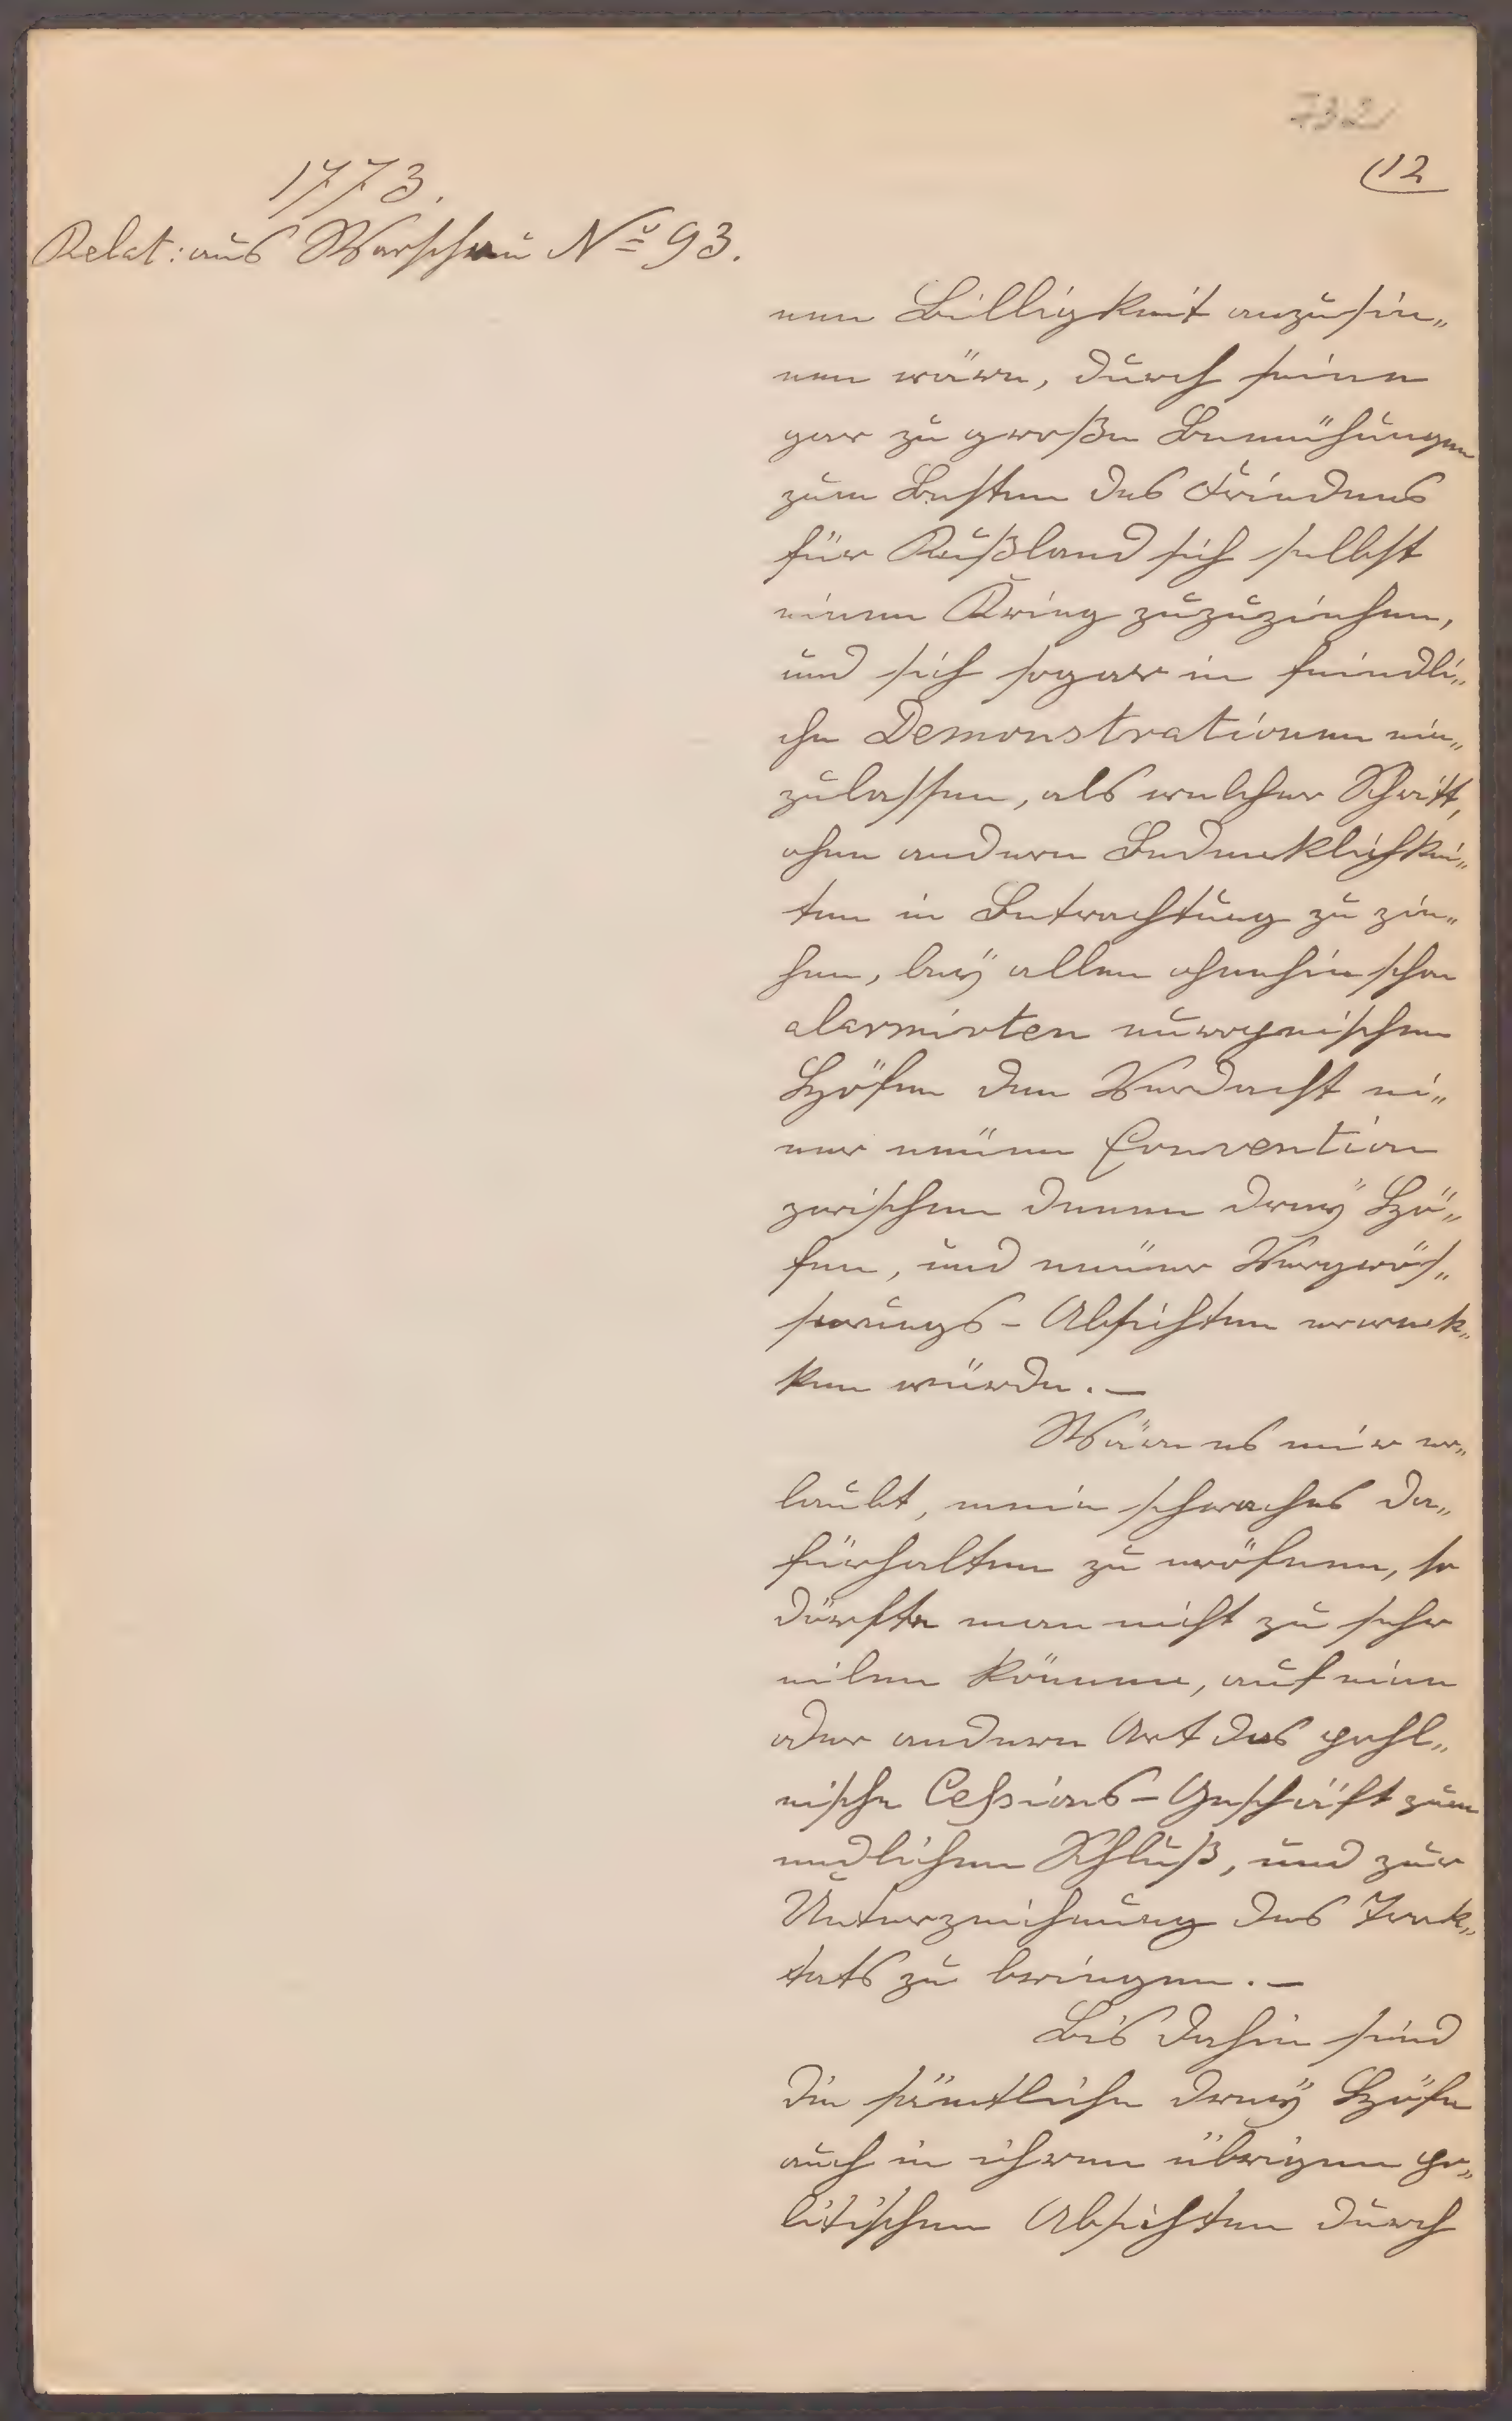 732
(12
1773.
Relat: aus Warschau No 93.
nen Billigkeit anzusin„
nen wäre, durch seine
gar zu große Bemühungen
zum Besten des Friedens
für Rußland sich selbst
einen Krieg zuzuziehen,
und sich sogar in feindli„
che Demonstrationen ein„
zulassen, als welcher Schritt,
ohne andere Bedenklichkei„
ten in Betrachtung zu zie„
hen, bey allen ohnehin schon
alarmirten europeischen
Höfen den Verdacht ei„
ner neüen Convention
zwischen denen dreÿ Hö„
fen, und neüer Vergrös„
serungs-Absichten erwek„
ken würde. —
Wäre es mir er„
laubt, mein schwaches Da„
fürhalten zu eröfnen, so
dürfte man nicht zu sehr
eilen können, auf eine
oder andere Art das pohl„
nische Cessions-Geschäft zum
endlichen Schluß, und zur
Unterzeichnung des Trak„
tats zu bringen. —
Bis dahin sind
die sämtliche dreÿ Höfe
auch in ihren übrigen po„
litischen Absichten durch